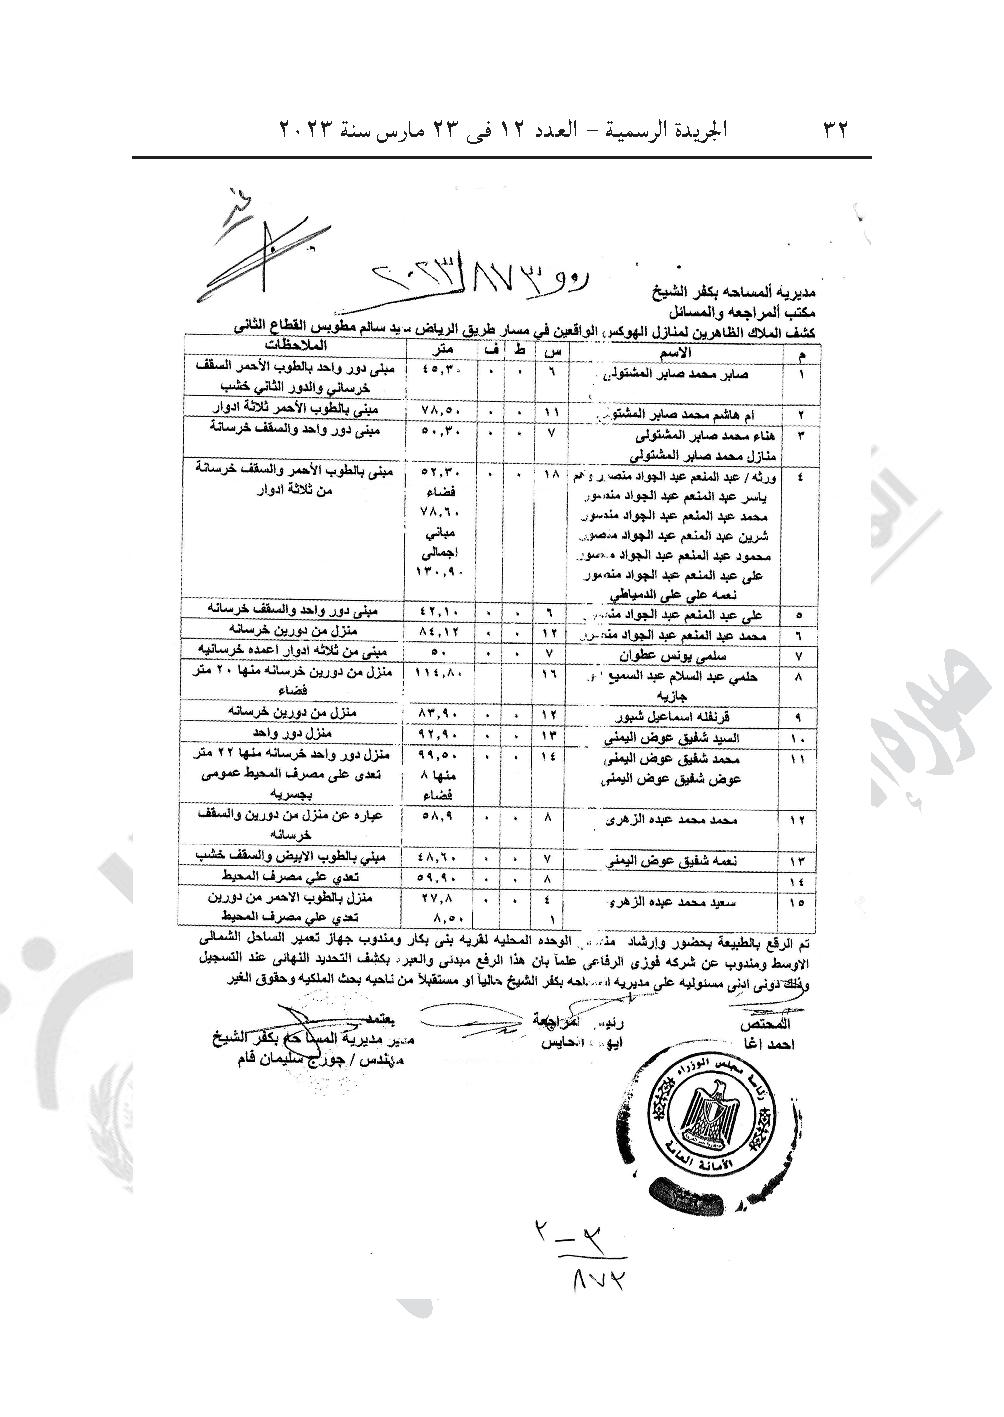 ٣٢
الجريدة الرسمية – العدد ١٢ فى ٢٣ مارس سنة ٢٠٢٣
٨٧٣
٢٠٢٣
مديريه المساحه بكفر الشيخ
مكتب المراجعه والمسائل
كشف الملاك الظاهرين لمنازل الهوكس الواقعين في مسار طريق الرياض سيد سالم مطوبس القطاع الثانى
م الاسم س ط ف متر الملاحظات
١ صابر محمد صابر المشتولى ٦ ٠ ٠ ٤٥,٣٠ مبنى دور واحد بالطوب الأحمر السقف
خرساني والدور الثاني خشب
٢ ام هاشم محمد صابر المشتولى ١١ ٠ ٠ ٧٨,٥٠ مبنى بالطوب الأحمر ثلاثة ادوار
٣ هناء محمد صابر المشتولى ٧ ٠ ٠ ٥٠,٣٠ مبنى دور واحد والسقف خرسانة
منازل محمد صابر المشتولي
٤ ورثه / عبد المنعم عبد الجواد منصور وهم ١٨ ٠ ٠ ٥٢,٣٠ مبنى بالطوب الأحمر والسقف خرسانة
ياسر عبد المنعم عبد الجواد منصور فضاء من ثلاثة ادوار
محمد عبد المنعم عبد الجواد منصور ٧٨,٦٠
شرين عبد المنعم عبد الجواد منصور مباني
محمود عبد المنعم عبد الجواد منصور اجمالى
على عبد المنعم عبد الجواد منصور ١٣٠,٩٠
نعمه علي علي الدمياطي
٥ على عبد المنعم عبد الجواد منصور ٦ ٠ ٠ ٤٢,١٠ مبنى دور واحد والسقف خرسانه
٦ محمد عبد المنعم عبد الجواد منصور ١٢ ٠ ٠ ٨٤,١٢ منزل من دورين خرسانه
٧ سلمي يونس عطوان ٧ ٠ ٠ ٥٠ مبنى من ثلاثه ادوار اعمده خرسانيه
٨ حلمي عبد السلام عبد السميع ١٦ ١١٤,٨٠ منزل من دورين خرسانه منها ٢٠ متر
جازيه فضاء
٩ قرنفله اسماعيل شبور ١٢ ٠ ٠ ٨٣,٩٠ منزل من دورين خرسانه
١٠ السيد شفيق عوض اليمنى ١٣ ٠ ٠ ٩٢,٩٠ منزل دور واحد
١١ محمد شفيق عوض اليمنى ١٤ ٠ ٠ ٩٩,٥٠ منزل دور واحد خرسانه منها ٢٢ متر
عوض شفيق عوض اليمنى منها ٨ تعدى على مصرف المحيط عمومى
فضاء بجسريه
١٢ محمد محمد عبده الزهرى ٨ ٠ ٠ ٥٨,٩ عباره عن منزل من دورين والسقف
خرسانه
١٣ نعمه شفيق عوض اليمنى ٧ ٠ ٠ ٤٨,٦٠ مبني بالطوب الابيض والسقف خشب
١٤ ٨ ٠ ٠ ٥٩,٩٠ تعدي علي مصرف المحيط
١٥ سعيد محمد عبده الزهرى ٤ ٠ ٠ ٢٧,٨ منزل بالطوب الاحمر من دورين
١ ٨,٥٠ تعدي علي مصرف المحيط
تم الرقع بالطبيعة بحضور وإرشاد الوحده المحليه لقريه بنى بكار ومندوب جهاز تعمير الساحل الشمالى
الاوسط ومندوب عن شركه فوزى الرفاعى علماً بان هذا الرفع مبدئى والعبره بكشف التحديد النهائى عند التسجيل
وذلك دونى ادنى مسئوليه على مديريه المساحه بكفر الشيخ حالياً او مستقبلاً من ناحيه بحث الملكيه وحقوق الغير
المختص رئيس المراجعة يعتمد
احمد اغا الحايس مدير مديرية المساحه بكفر الشيخ
مهندس / جورج سليمان فام
رئاسة مجلس الوزراء
الأمانة العامة
٣ – ٢
٨٧٣